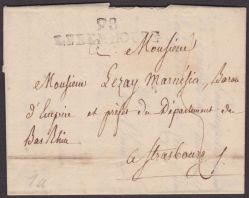 à Monsieur
Monsieur Lezay Marnésia, Baron
d'Empire et préfet du Département de
Bas Rhin
a Strasbourg